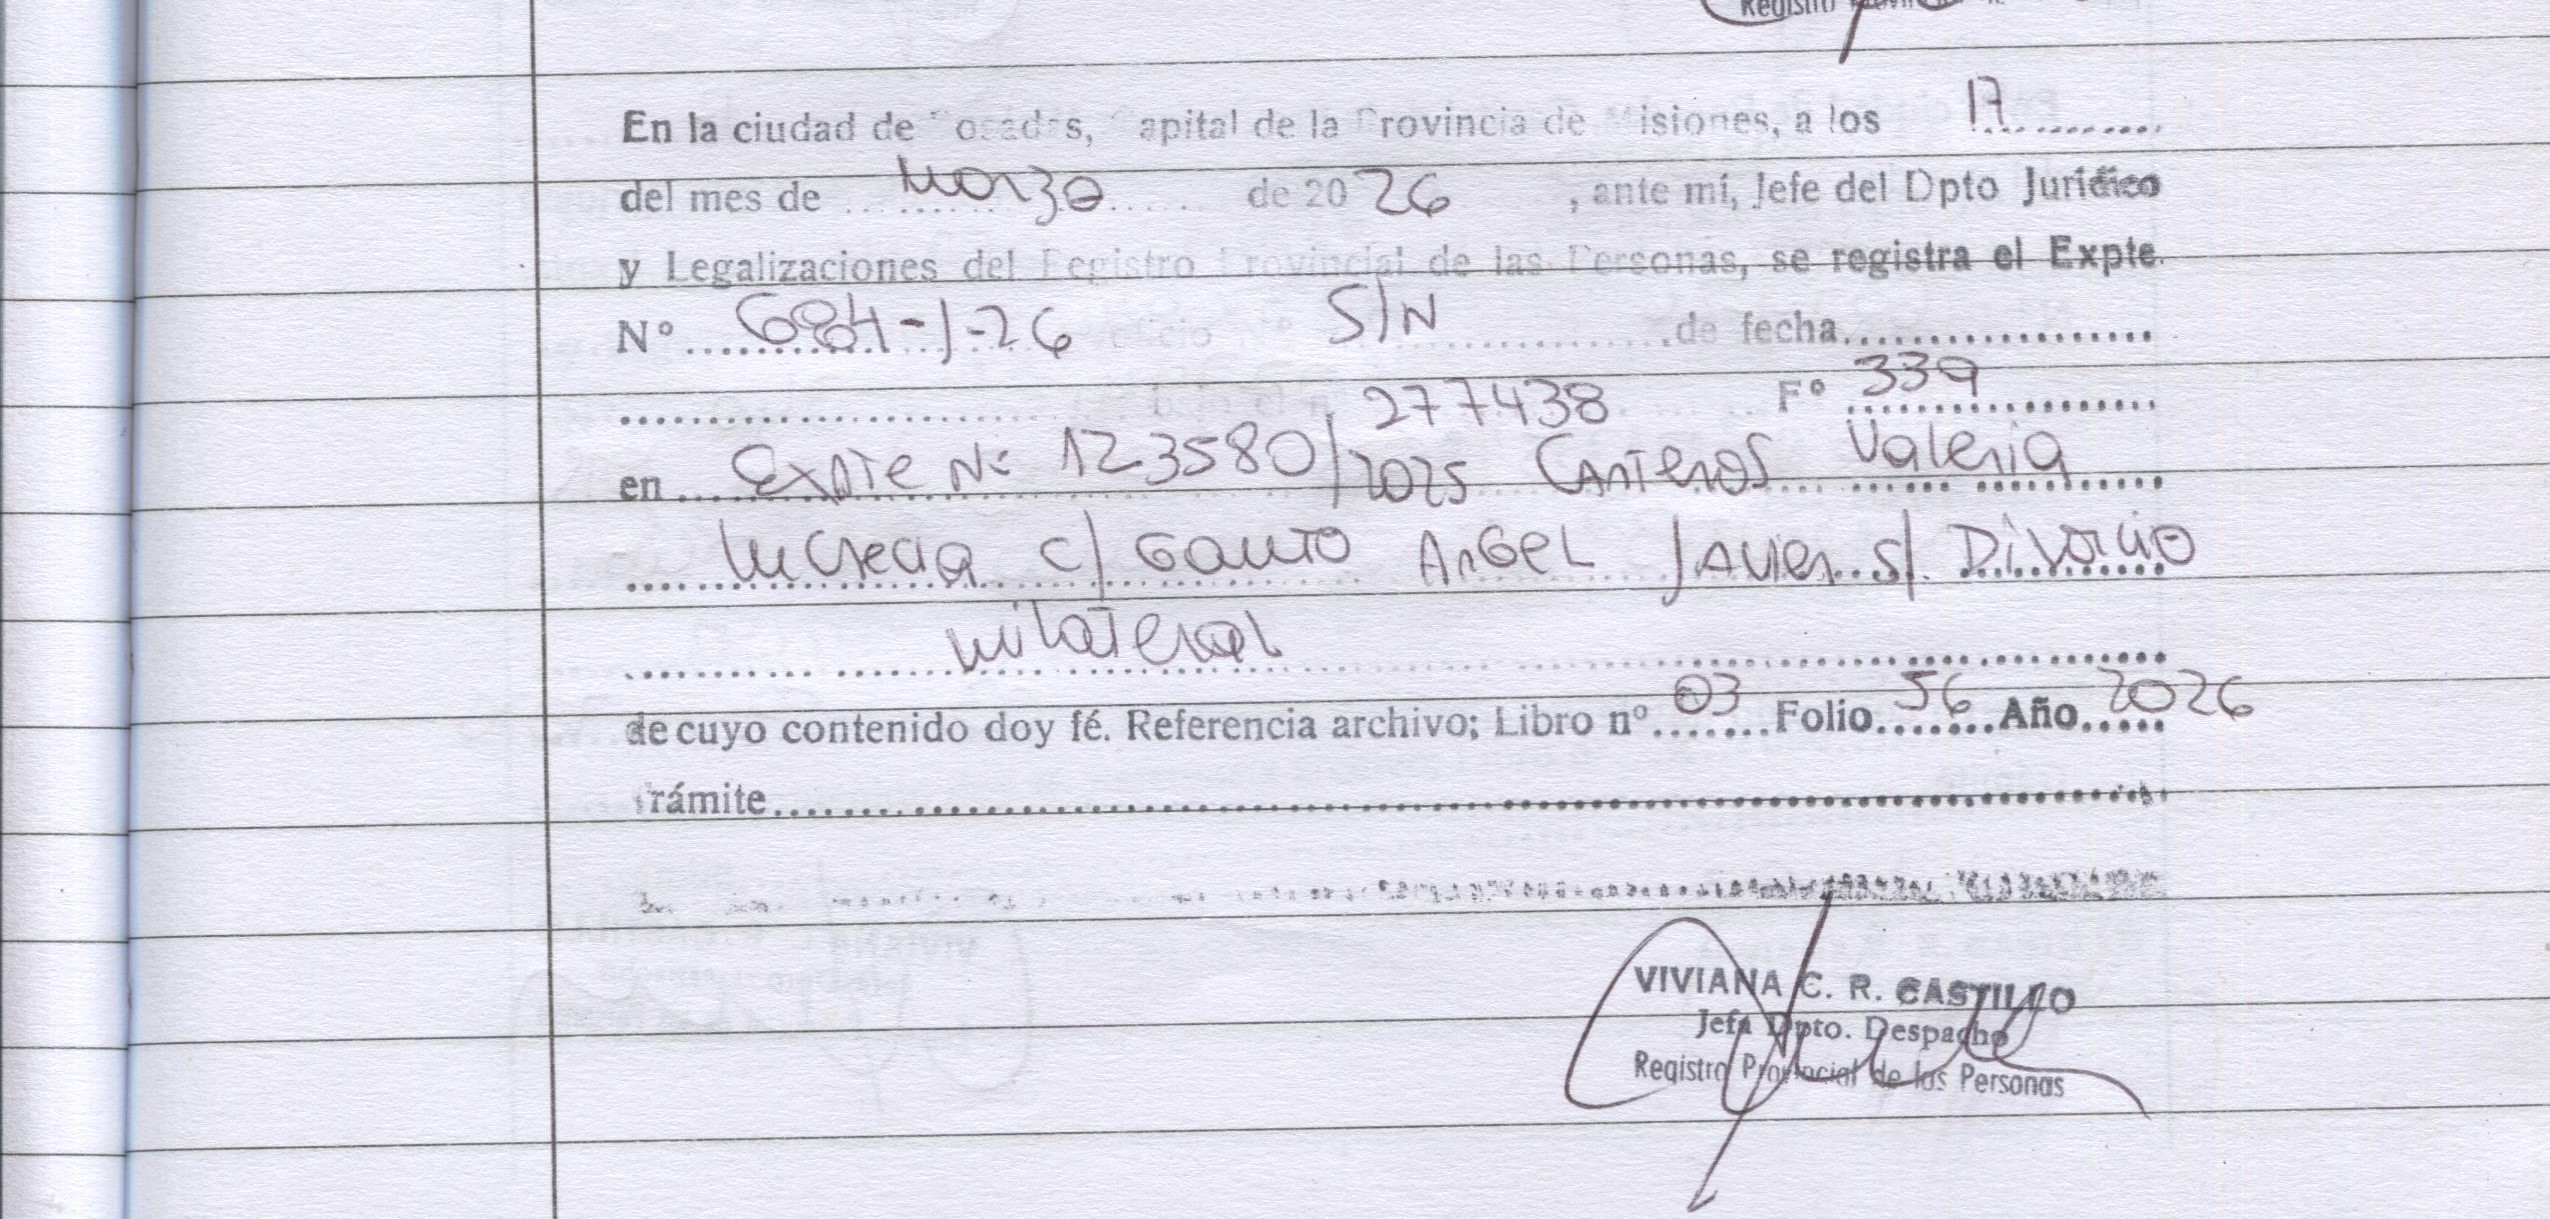 Registro
En la ciudad de Posadas, Capital de la Provincia de Misiones, a los 17
del mes de Marzo de 2026, ante mí, Jefe del Dpto Jurídico
y Legalizaciones del Registro Provincial de las Personas, se registra el Expte.
Nº 684-J-26 oficio Nº S/N de fecha
277438 Fº 339
en Expte Nº 123580/2025 Canteros Valeria
lucrecia c/ Gauto Angel Javier s/ Divorcio
unilateral
de cuyo contenido doy fé. Referencia archivo; Libro nº 03 Folio 56 Año 2026
Trámite
VIVIANA C. R. CASTILLO
Jefa Dpto. Despacho
Registro Provincial de las Personas